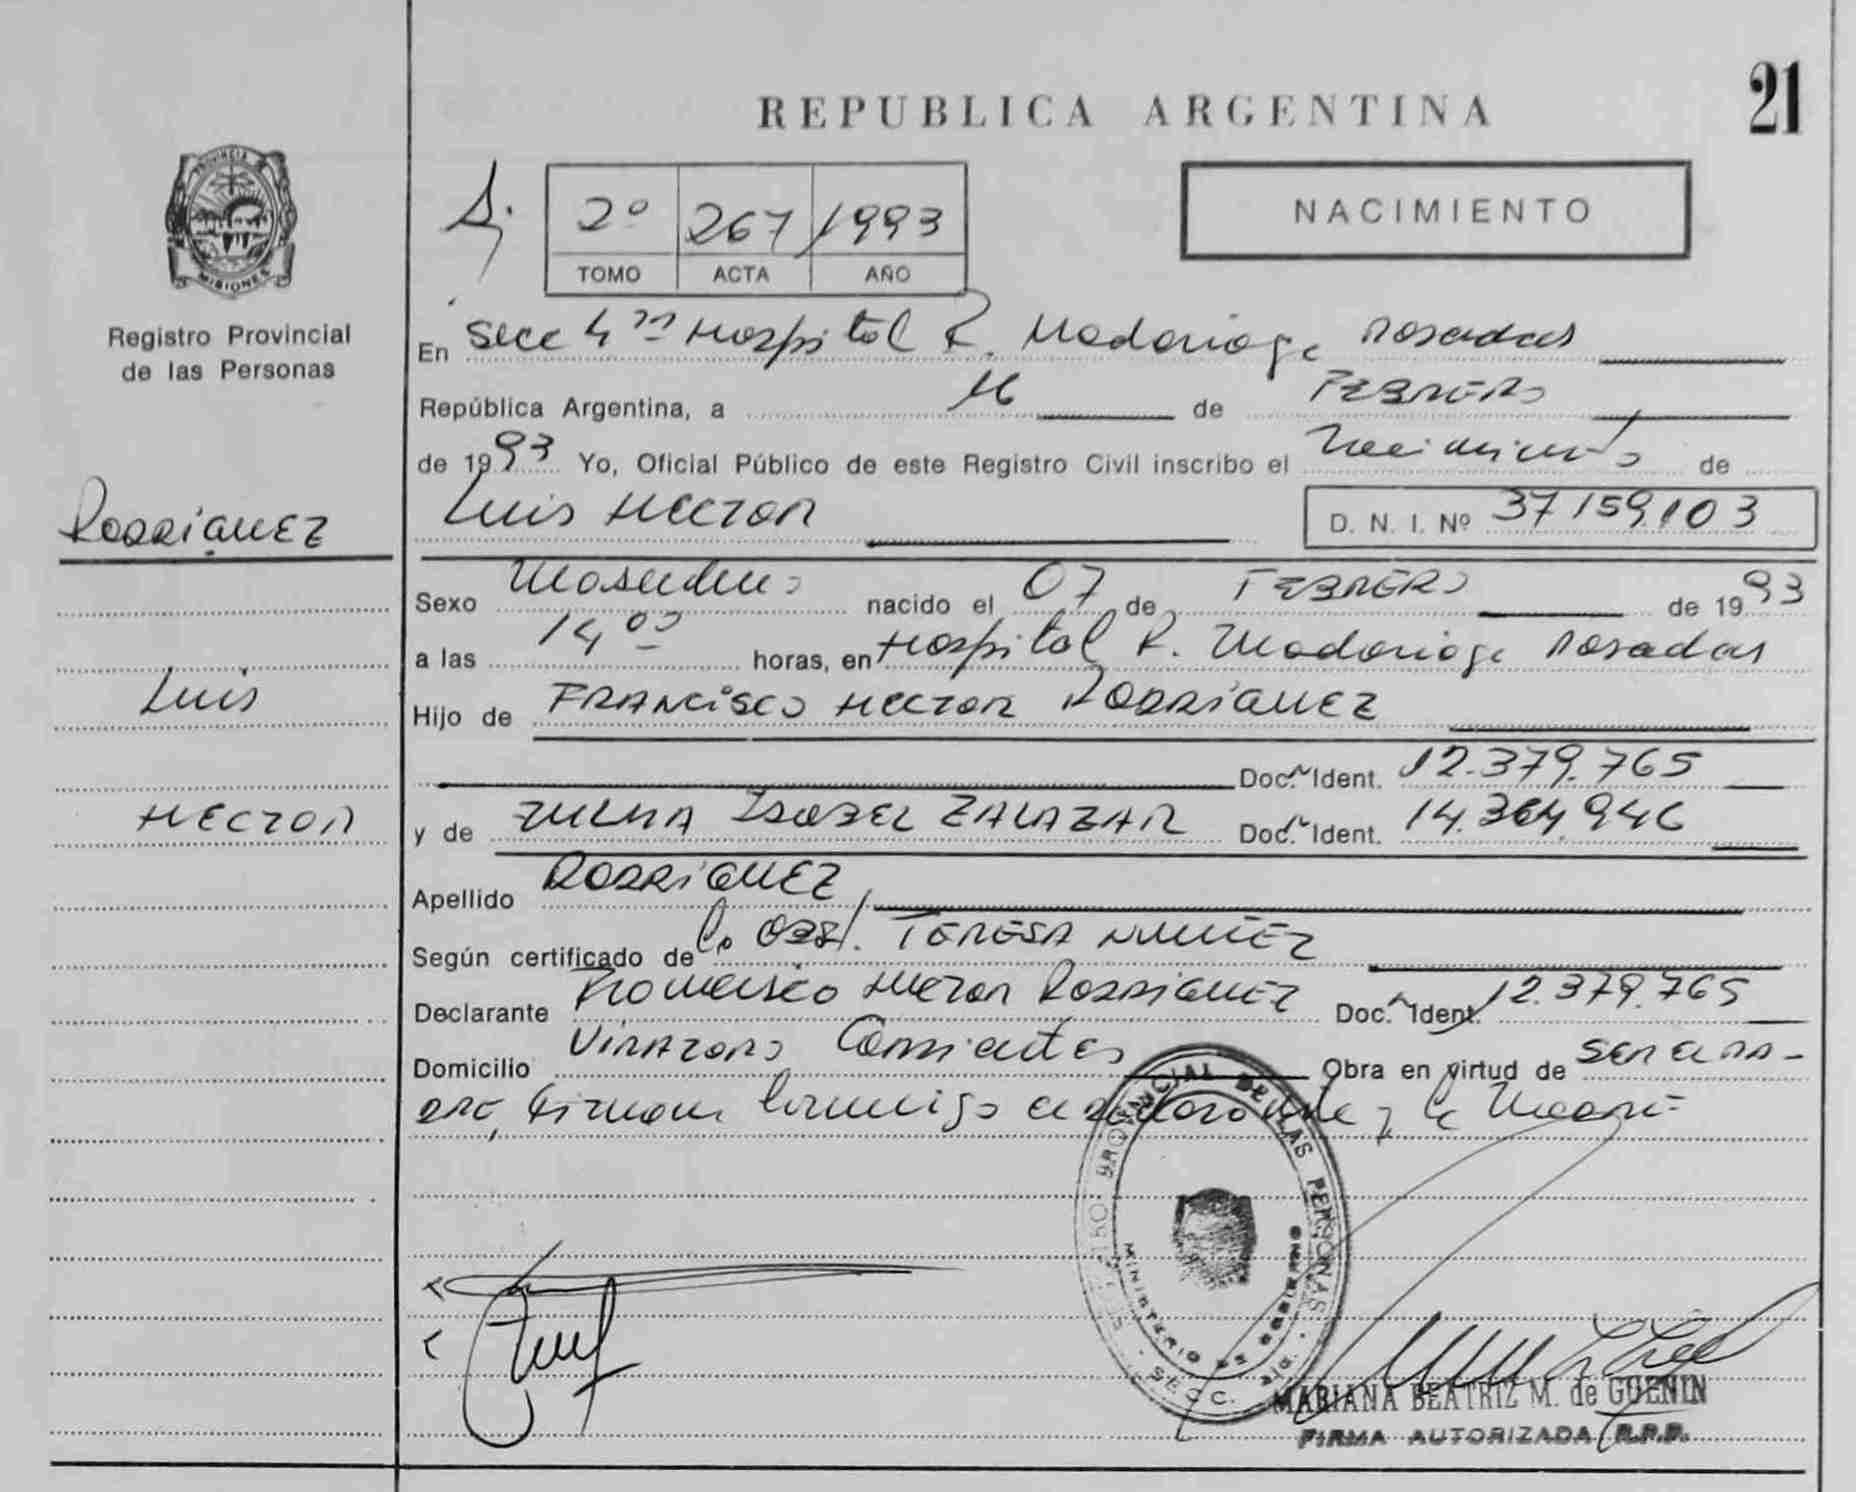 REPUBLICA ARGENTINA
21
PROVINCIA DE
MISIONES
Registro Provincial
de las Personas
2º 267 1993
TOMO ACTA AÑO
NACIMIENTO
En Secc 4ta Hospital R. Madariaga Posadas
República Argentina, a 16 de FEBRERO
de 1993 Yo, Oficial Público de este Registro Civil inscribo el Nacimiento de
RODRIGUEZ
Luis HECTOR
D. N. I. Nº 37.159.103
Sexo Masculino nacido el 07 de FEBRERO de 1993
a las 14 00 horas, en Hospital R. Madariaga Posadas
Luis
Hijo de FRANCISCO HECTOR RODRIGUEZ
Doc. Ident. 12.379.765
HECTOR
y de ZULMA ISABEL ZALAZAR Doc. Ident. 14.364.946
Apellido RODRIGUEZ
Según certificado de la Obst. TERESA NUÑEZ
Declarante Francisco Hector RODRIGUEZ Doc. Ident. 12.379.765
Domicilio VIRASORO Corrientes Obra en virtud de SER EL PA-
DRE, Firman conmigo el declarante y la Madre
REGISTRO PROVINCIAL DE LAS PERSONAS
MINISTERIO DE GOBIERNO
SECC.
MARIANA BEATRIZ M. de GUENIN
FIRMA AUTORIZADA R.P.P.